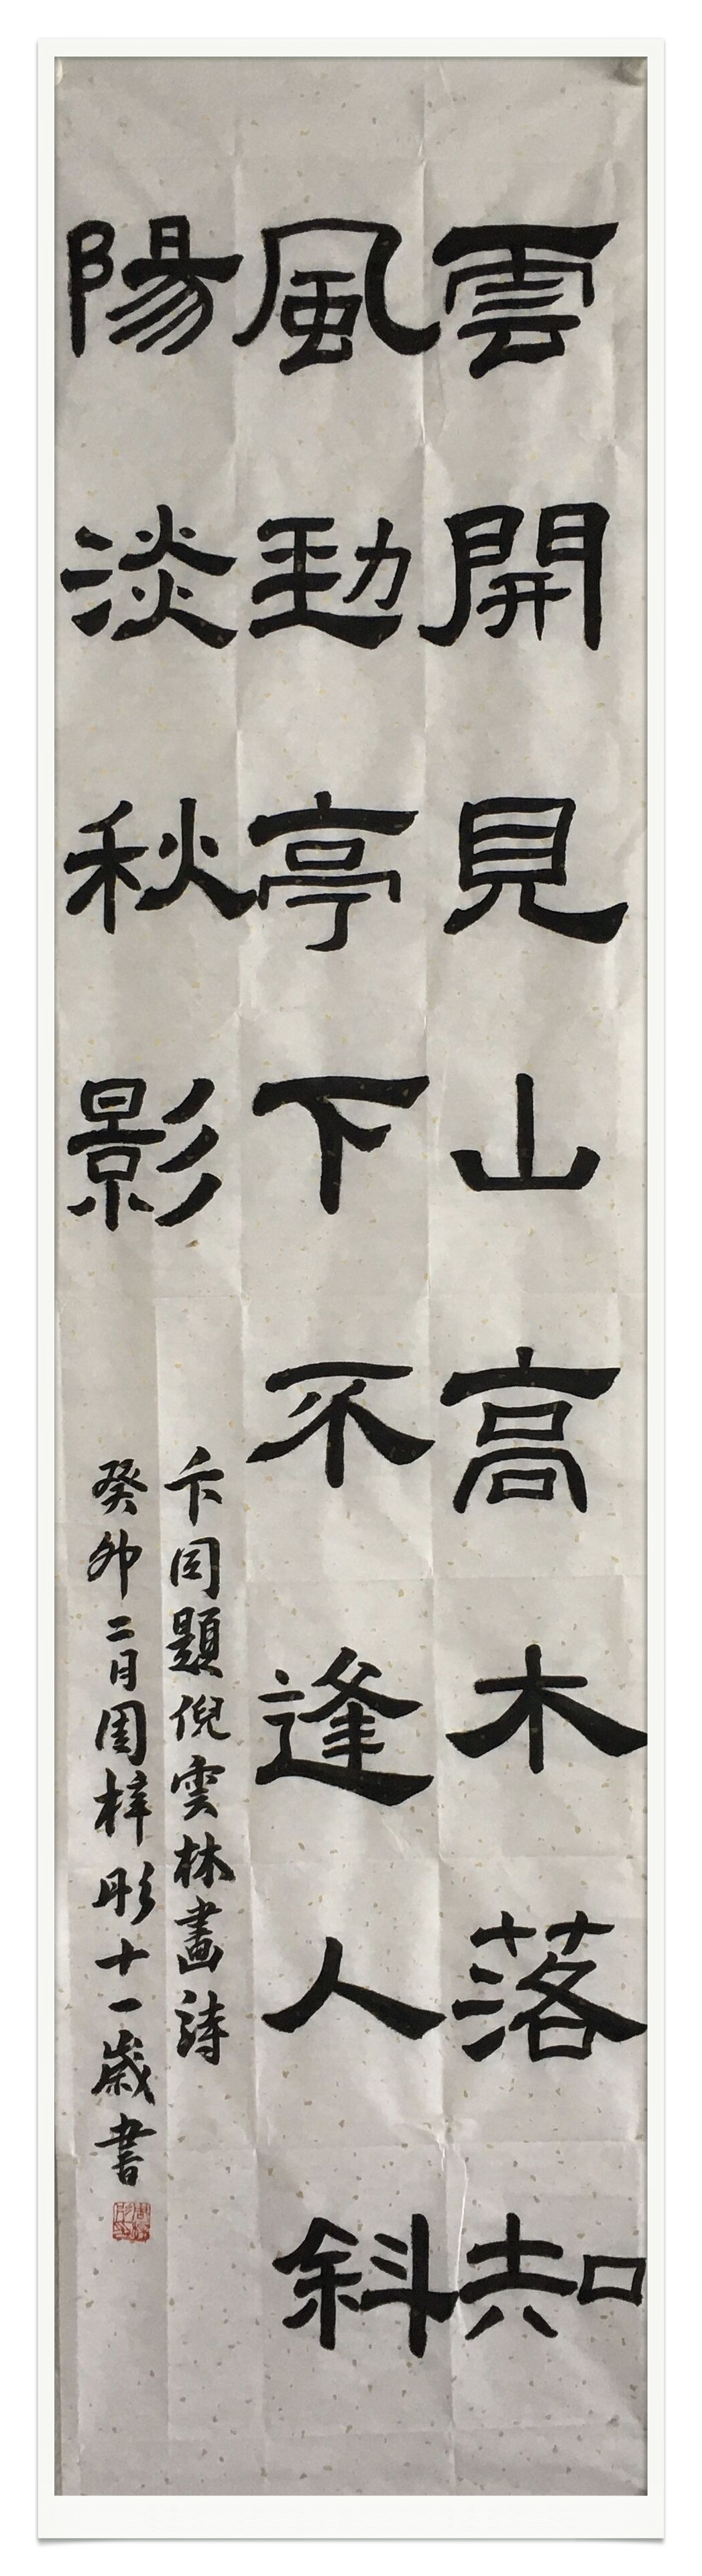 雲開見山高木落知
風勁亭下不逢人斜
陽淡秋影
卞同題倪雲林畫詩
癸卯二月周梓彤十一歲書